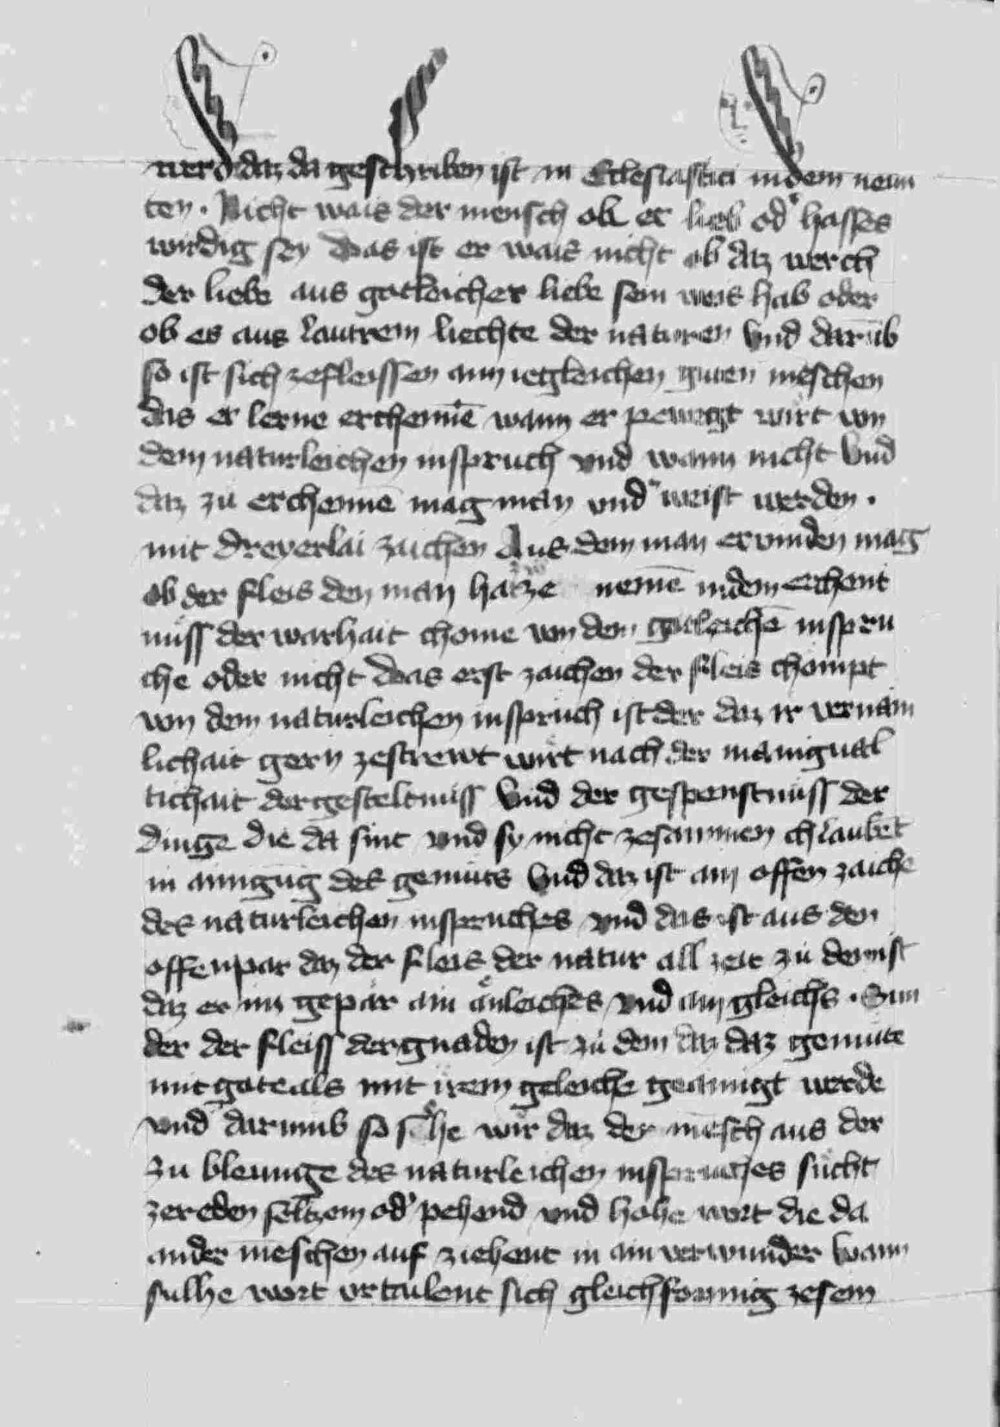 werd daz da geschriben ist in Ecclesiastici in dem neun
ten. Nicht wais der mensch ob er lieb od' hasses
wirdig sey Das ist er wais nicht ob daz werch
der liebe aus gotleicher liebe sein weis hab oder
ob es aus lautrem liechte der naturen Vnd darūb
so ist sich zefleissen aim iegleichen guten mēschen
das er lerne erchennē wann er pewegt wirt von
dem naturleichen inspruch vnd wann nicht Vnd
daz zu erchennē mag man vnd'weist werden.
mit dreyerlai zaichen Aus dem man ervinden mag
ob der fleis den man hat ze nemē in dem erchant
nuss der warhait chome von dem gotleichē inspru
che oder nicht Das erst zaichen der fleis chompt
von dem naturleichen inspruch ist der daz ir vernām
lichait gern zestrewt wirt nach der manigual
tichait der gesteltnuss Vnd der gespenstnuss der
dinge die da sint vnd sy nicht zesammen chlaubet
in ainigūg des gemuts Vnd daz ist ain offen zaichē
des naturleichen inspruches vnd das ist aus den
offenpar daz der fleis der natur all zeit zu dem ist
daz er im gepār ain ānleichēs vnd ain gleichs. Sun
der der fleiss der gnaden ist zu dem daz daz gemute
mit gote als mit irem geleiche geainigt werde
vnd darumb so sehe wir daz der mēsch aus der
zu bleunge des naturleichen inspruches sucht
ze reden seltzem od' pehend vnd hohe wort die da
ander mēschen auf ziehent in ain verwunder Wann
sulhe wort vrtailent sich gleichformig ze sein